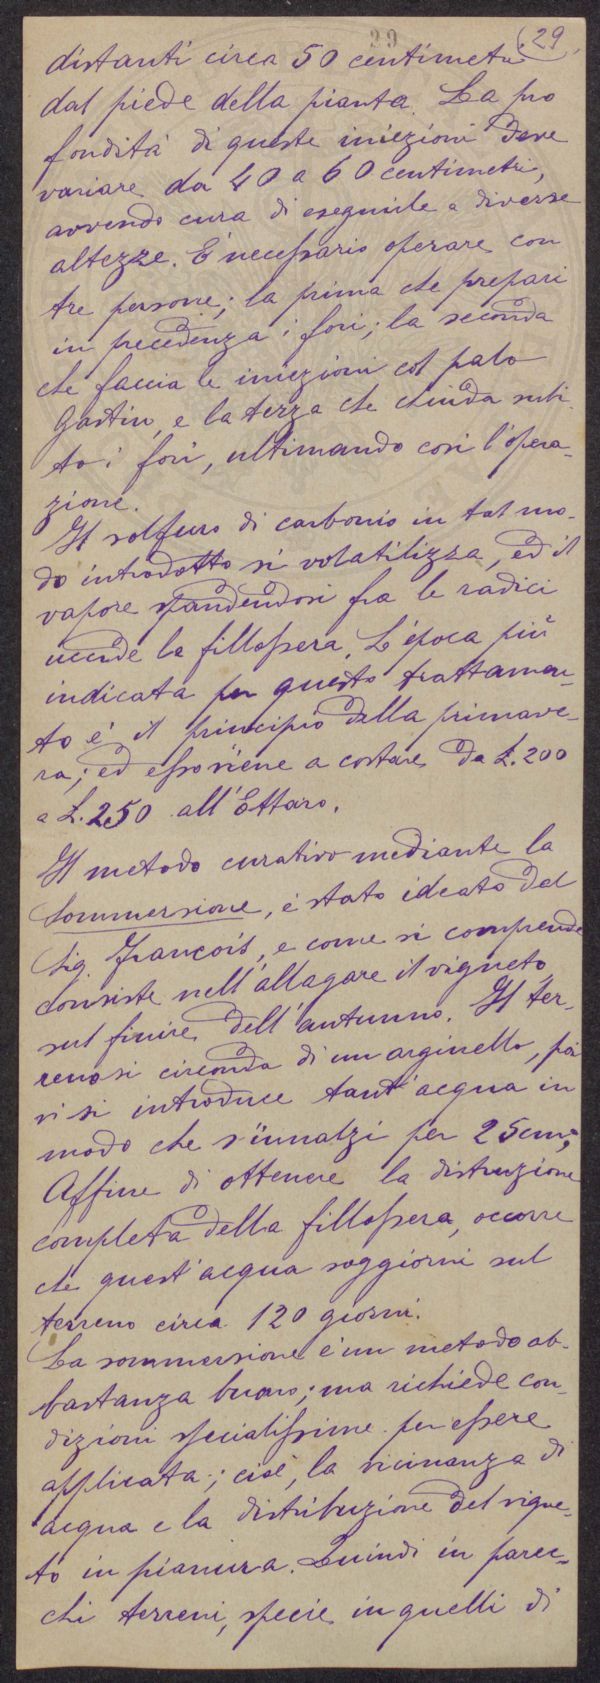 29 (29)
distanti circa 50 centimetri
dal piede della pianta. La pro
fondità di queste iniezioni deve
variare da 40 a 60 centimetri,
avvendo cura di eseguirle a diverse
altezze. È necessario operare con
tre persone; la prima che prepari
in precedenza i fori; la seconda
che faccia le iniezioni col palo
Gastin, e la terza che chiuda subi-
to i fori, ultimando così l'opera-
zione.
Il solfuro di carbonio in tal mo-
do introdotto si volatilizza, ed il
vapore spandendosi fra le radici
uccide la fillossera. L'epoca più
indicata per questo trattamen-
to è il principio della primave-
ra; ed esso viene a costare da L. 200
a L. 250 all'Ettaro.
Il metodo curativo mediante la
Sommersione, è stato ideato del
Sig. François, e come si comprende
consiste nell'allagare il vigneto
sul finire dell'autunno. Il ter-
reno si circonda di un arginello, poi
vi si introduce tant'acqua in
modo che s'innalzi per 25 cm;
Affine di ottenere la distruzione
completa della fillossera, occorre
che quest'acqua soggiorni sul
terreno circa 120 giorni.
La sommersione è un metodo ab-
bastanza buono; ma richiede con-
dizioni specialissime per essere
applicata; cioè, la vicinanza di
acqua e la distribuzione del vigne-
to in pianura. Quindi in parec-
chi terreni, specie in quelli di